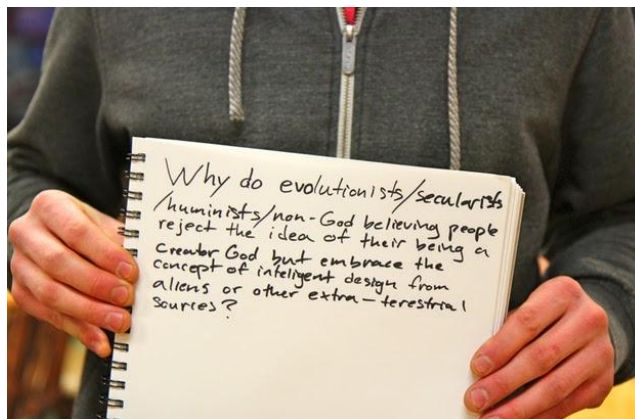 Why do evolutionists/secularists
/huminists/non-God believing people
reject the idea of their being a
Creator God but embrace the
concept of inteligent design from
aliens or other extra-terestrial
sources?